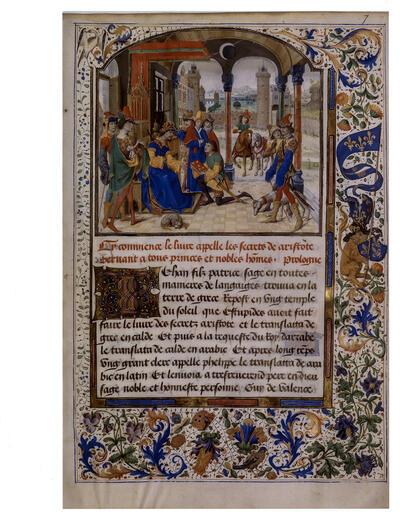 7
Cy commence le livre appelle les secrets de aristote
servant a tous princes et nobles hômes. Prologue
Jehan filz patrice sage en toutes
manieres de langaiges trouva en la
terre de grece Repost en ung temple
du soleil que Estupides avoit fait
faire le livre des secretz aristote et le translata de
grec en caldé Et puis a la requeste du Roy darrabe
le translata de caldé en arabic Et apres long têps
Ung grant clerc appelle phelippe le translata de ara
bic en latin Et lenvoia a
sage noble et honneste personne Guy de Valence